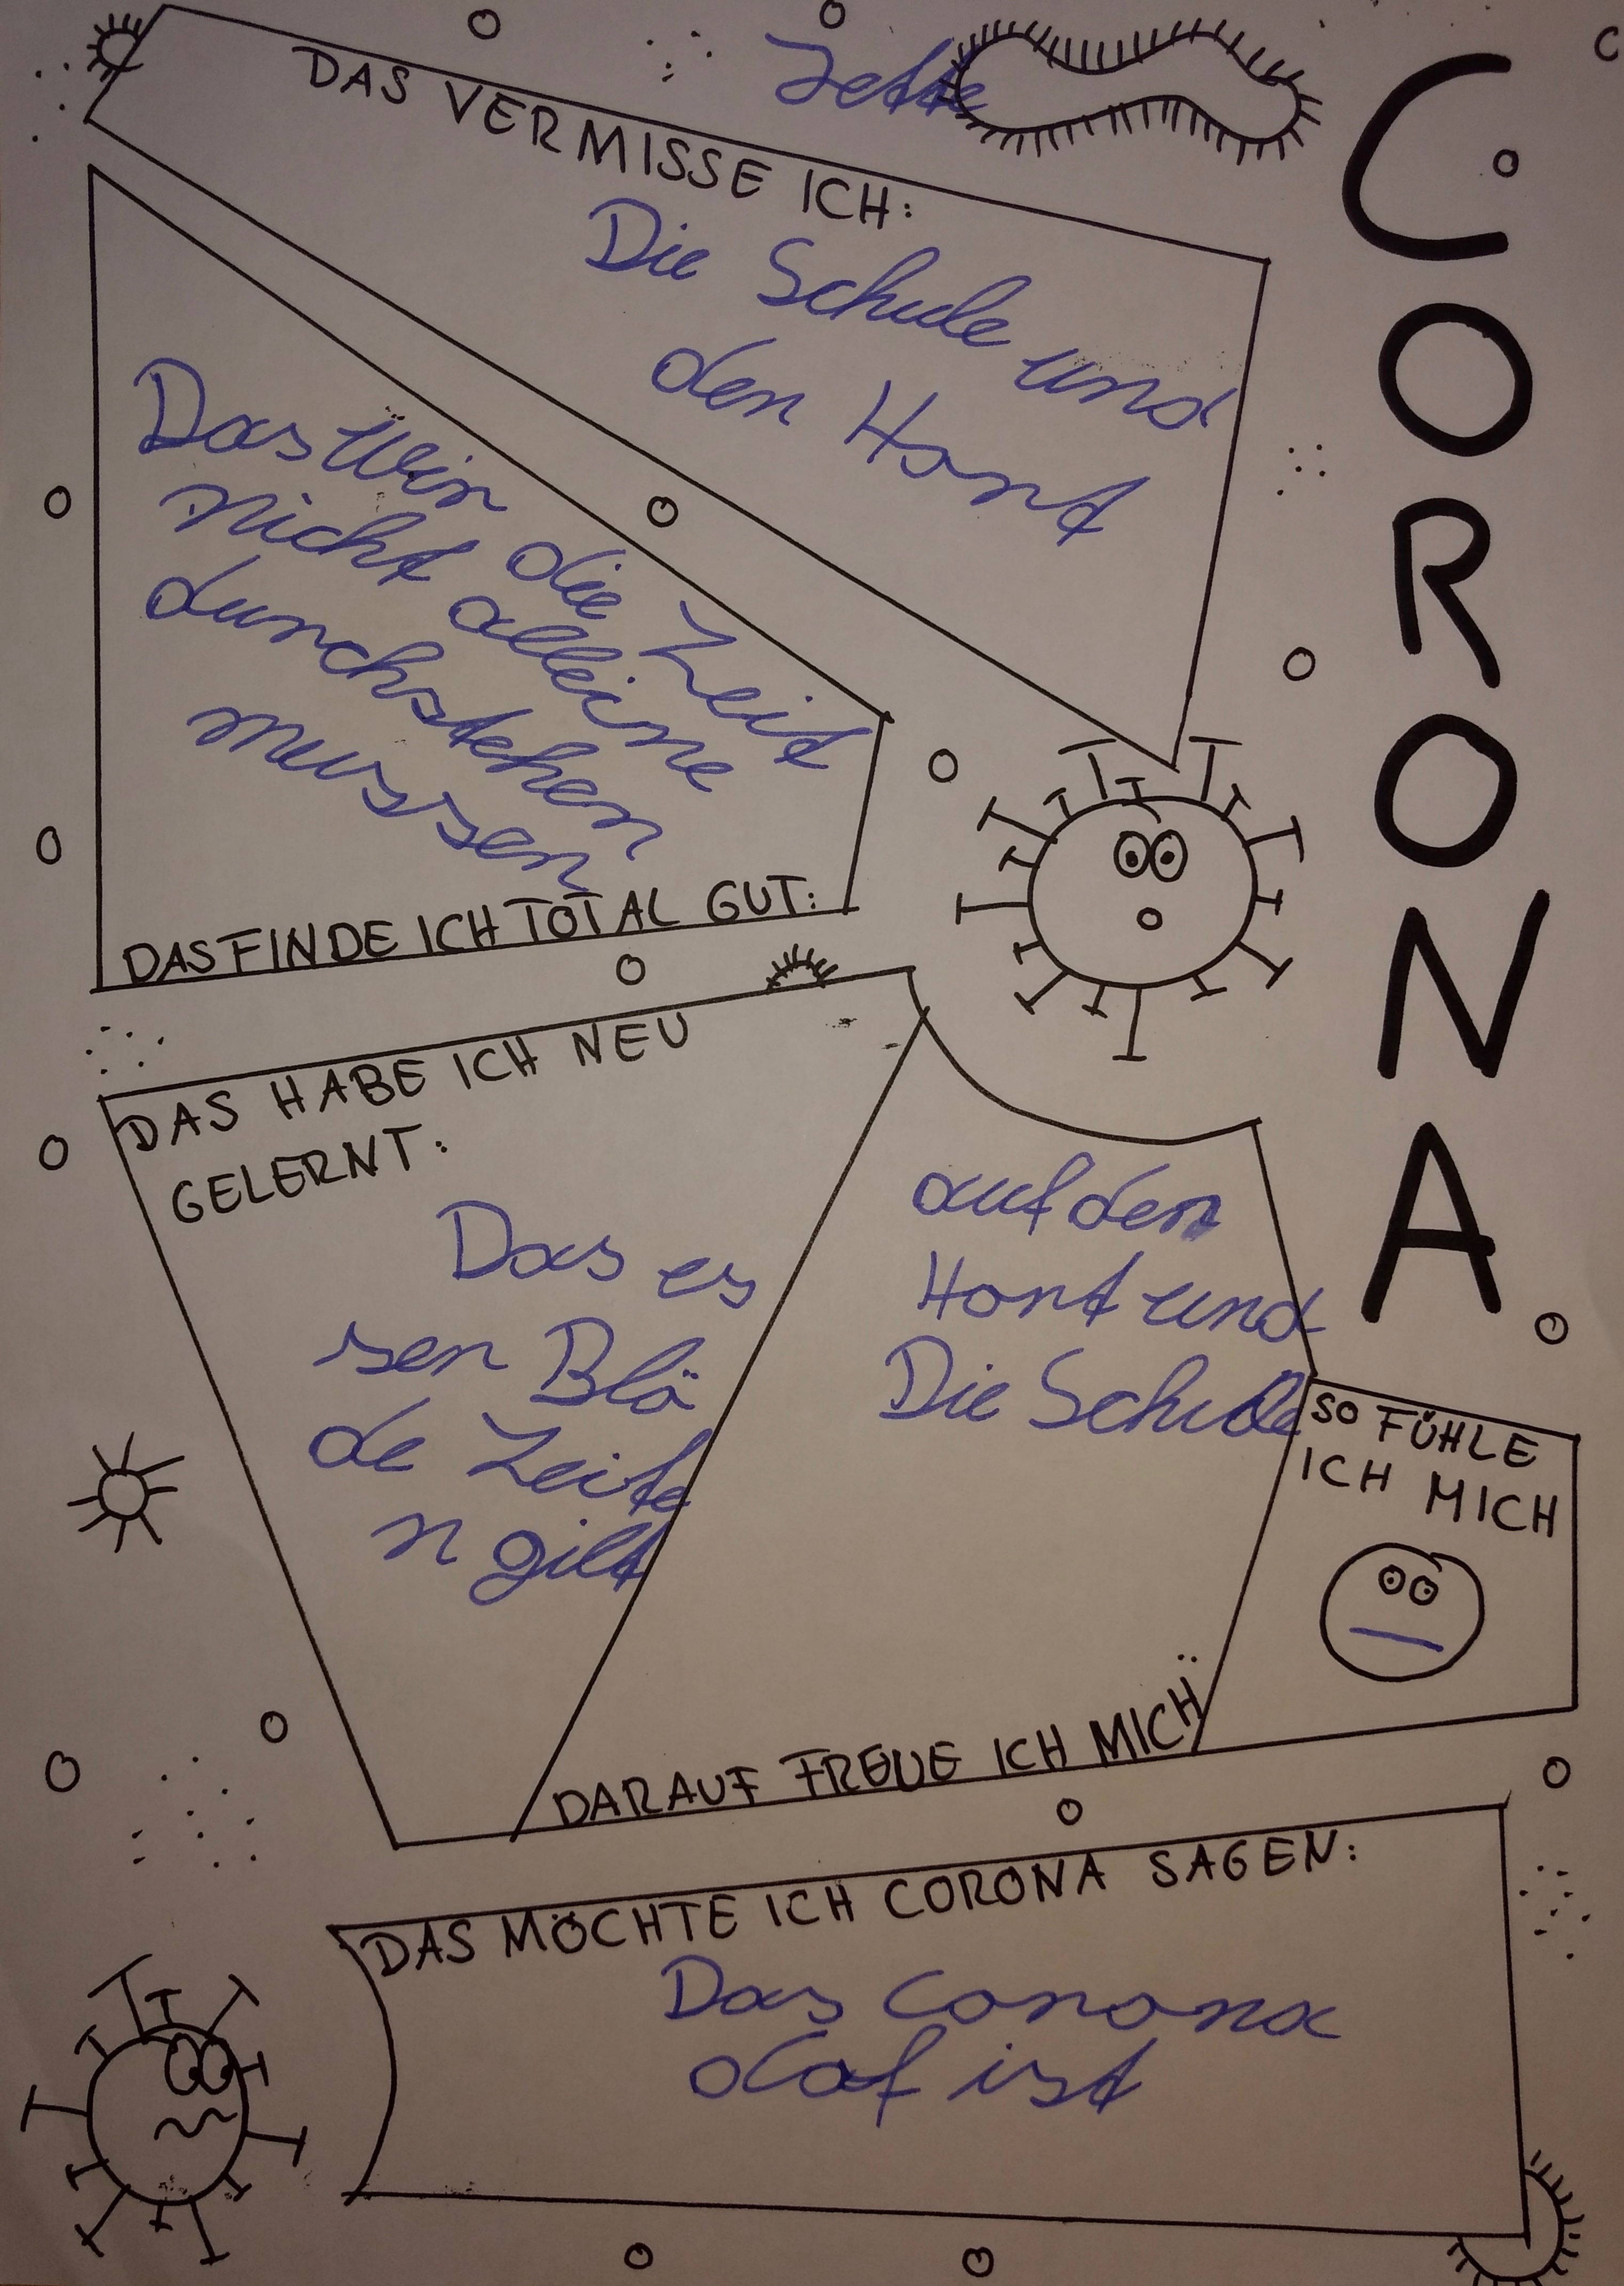 Jette
CORONA
DAS VERMISSE ICH:
Die Schule und
den Hort
Das wir die Zeit
nicht alleine
durchstehen
mussen
DAS FINDE ICH TOTAL GUT:
DAS HABE ICH NEU
GELERNT:
Das es
sen Blö
de Zeite
n gibt
auf den
Hort und
Die Schule
DARAUF FREUE ICH MICH
SO FÜHLE
ICH MICH
DAS MÖCHTE ICH CORONA SAGEN:
Das Corona
doof ist